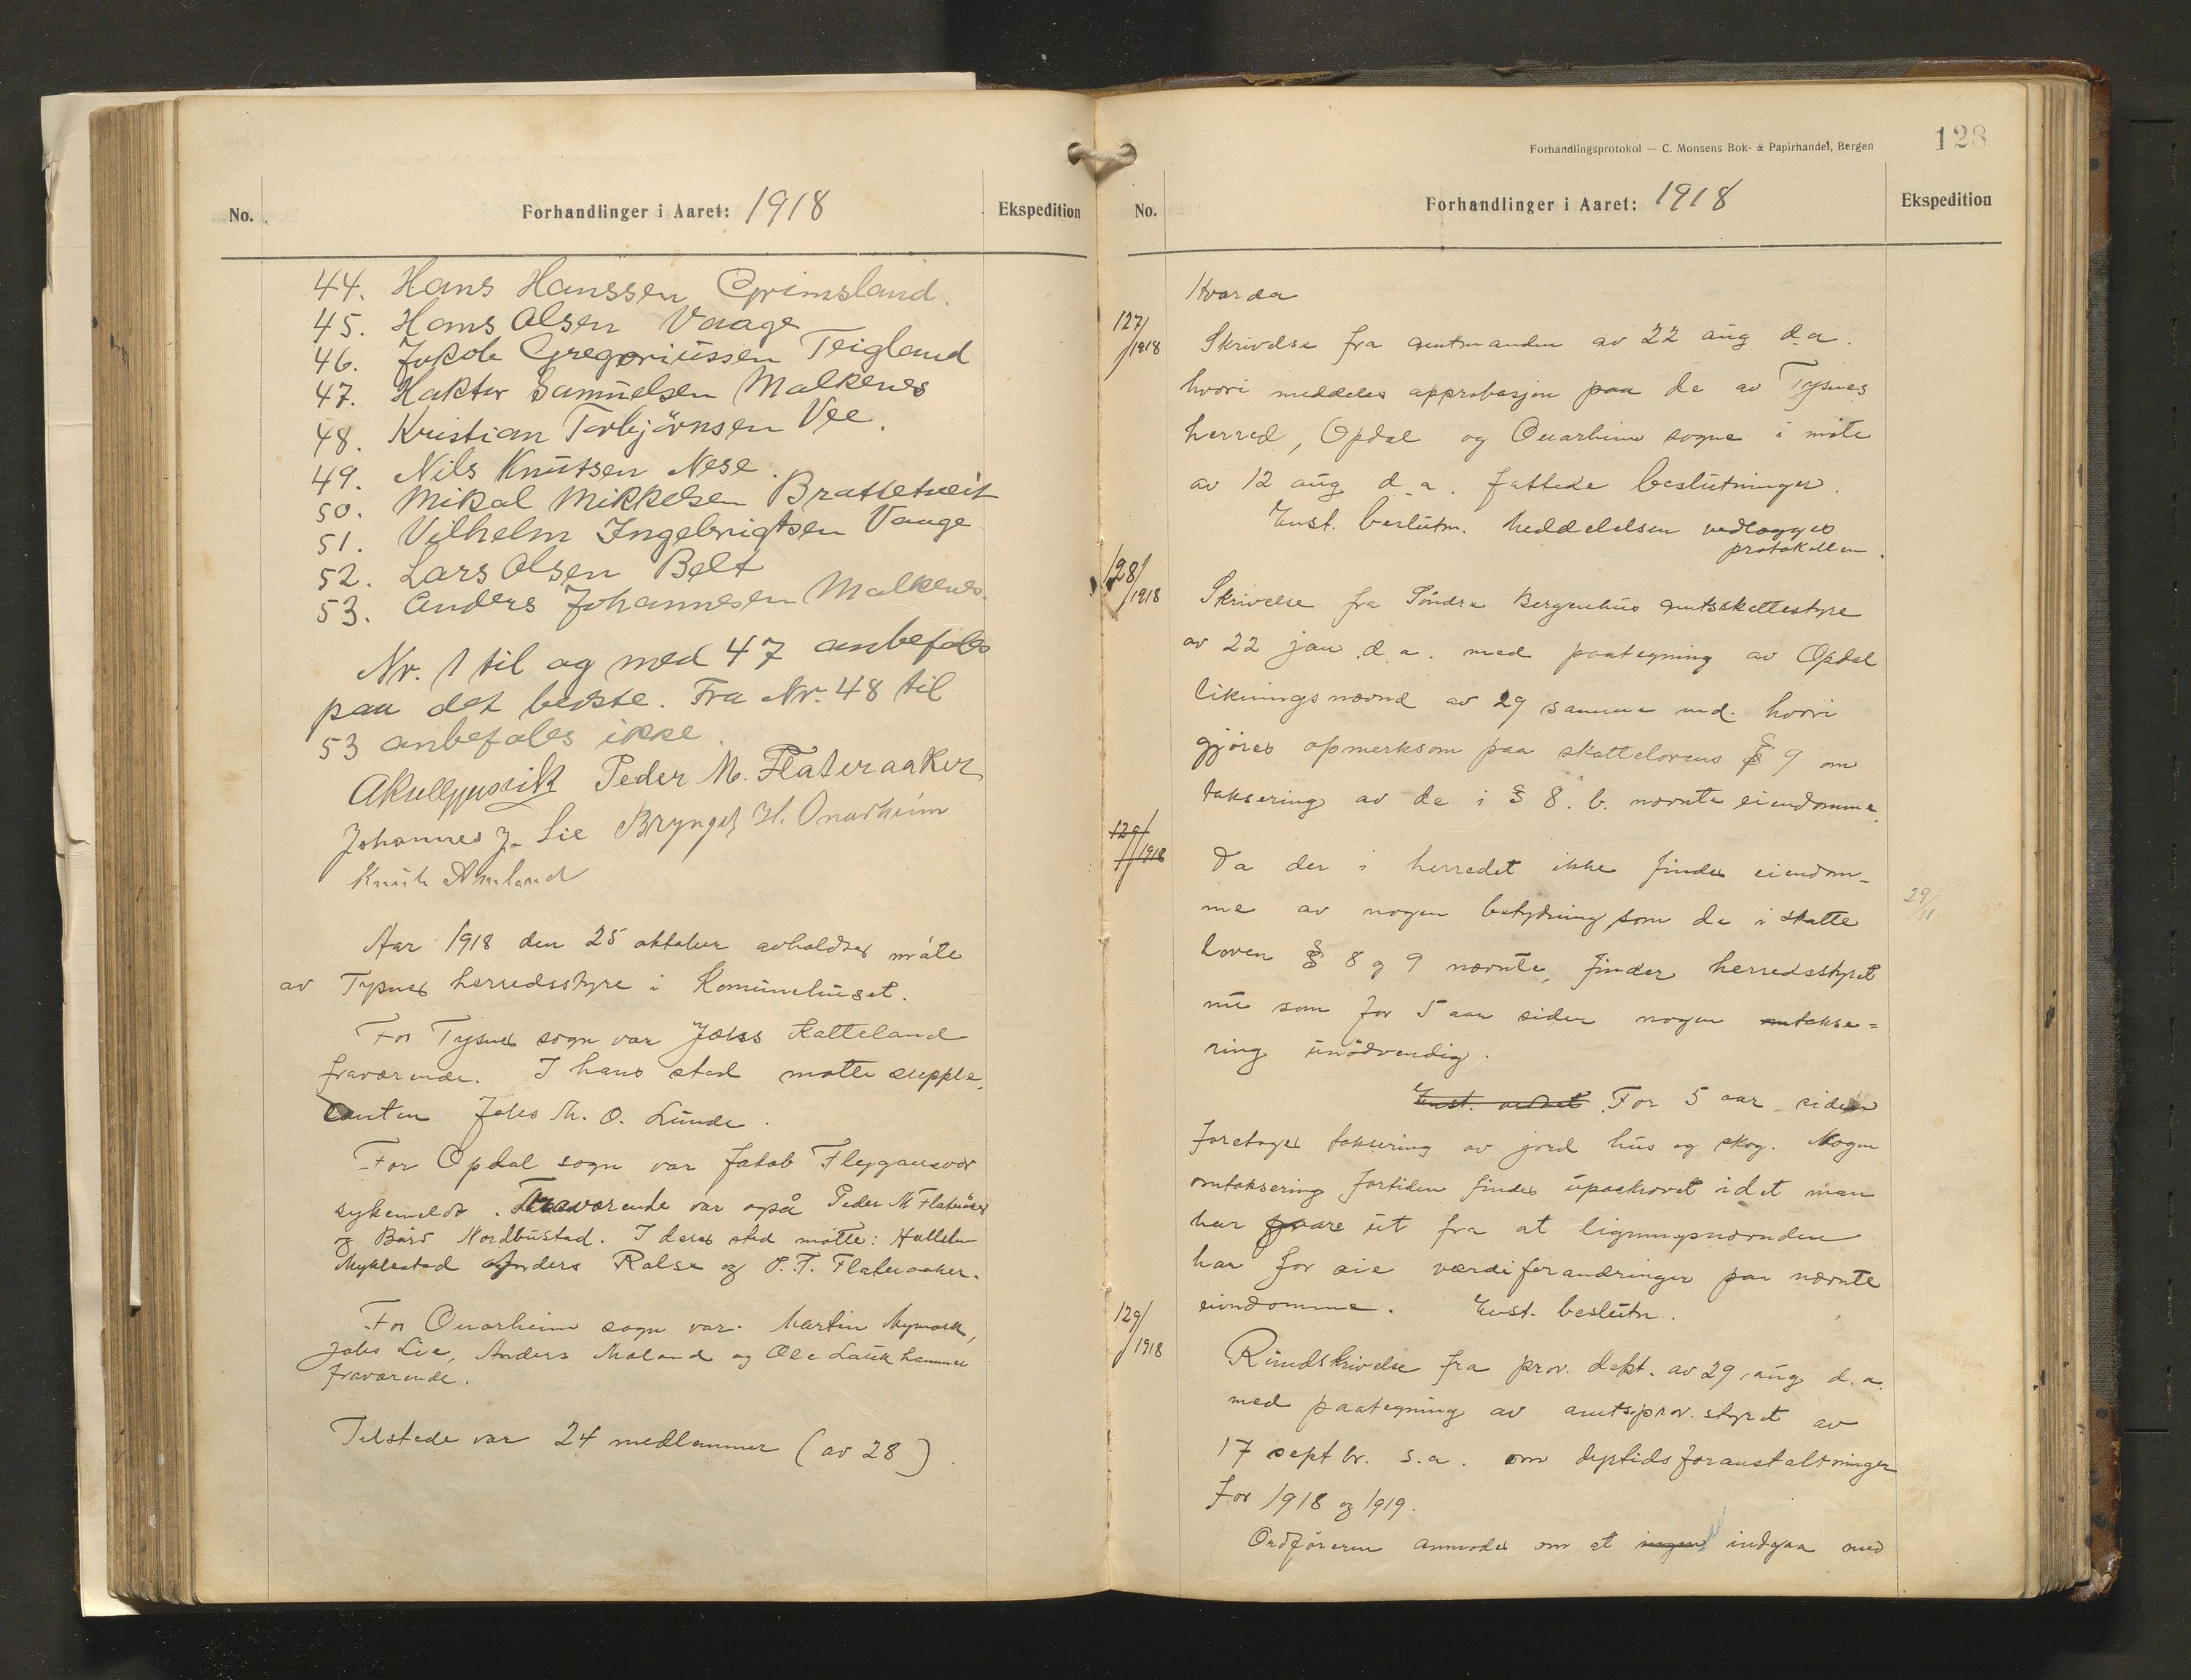 No.
Forhandlinger i Aaret: 1918
Ekspedition
44. Hans Hanssen Grimsland.
45. Hans Olsen Vaage
46. Jakob Gregoriussen Teigland
47. Haktor Samuelsen Malkenes
48. Kristian Torbjörnsen Vee.
49. Nils Knutsen Nese.
50. Mikal Mikkelsen Brattetveit
51. Vilhelm Ingebrigtsen Vaage
52. Lars Olsen Belt
53. Anders Johannesen Malkenes.
Nr. 1 til og med 47 anbefales
paa det beste. Fra Nr. 48 til
53 anbefales ikke.
Peder M. Flateraaker
Johannes J. Lie Brynjel H. Onarheim
Knut Amland
Aar 1918 den 25 oktober avholdtes möte
av Tysnes herredsstyre i Komunehuset.
For Tysnes sogn var Johs Katteland
fraværende. I hans sted mötte supple
anten Johs M. O. Lunde.
For Opdal sogn var Jakob Flygansvær
sykemeldt. Fraværende var også Peder M Flateråker
og Bård Nordbustad. I deres sted mötte: Hallstein
Myklestad Anders Ralse og P. T. Flateraaker.
For Onarheim sogn var Martin Mymark,
Johs Lie, Anders Møland og Ole Laukhammer
fraværende.
Tilstede var 24 medlemmer (av 28).
Forhandlingsprotokol — C. Monsens Bok- & Papirhandel, Bergen
128
No.
Forhandlinger i Aaret: 1918
Ekspedition
Hvorda
127/1918 Skrivelse fra amtmanden av 22 aug d.a.
hvori meddeles approbasjon paa de av Tysnes
herred, Opdal og Onarheim sogne i möte
av 12 aug d.a. fattede beslutninger.
Enst. beslutn. Meddelelsen vedlægges
protokollen.
128/1918 Skrivelse fra Söndre Bergenhus amtsskattestyre
av 22 jan d.a. med paategning av Opdal
likningsnævnd av 29 samme md. hvori
gjöres opmerksom paa skattelovens § 9 om
taksering av de i § 8. b. nævnte eiendomme.
129/1918 Da der i herredet ikke findes eiendom-
me av nogen betydning som de i skatte
loven § 8 og 9 nævnte, finder herredsstyret
nu som for 5 aar siden nogen omtakse=
ring unödvendig.
29/11
Enst. vedtat For 5 aar siden
foretoges taksering av jord hus og skog. Nogen
omtaksering fortiden findes upaakrævet idet man
har gaar ut fra at ligningsnævnden
har for öie værdiforandringer paa nævnte
eiendomme. Enst. beslutn.
129/1918 Rundskrivelse fra prov. dept. av 29 aug d.a.
med paategning av amtsprov. styret av
17 septbr. s.a. om dyrtidsforanstaltninger
for 1918 og 1919.
Ordföreren anmodes om at indgaa med